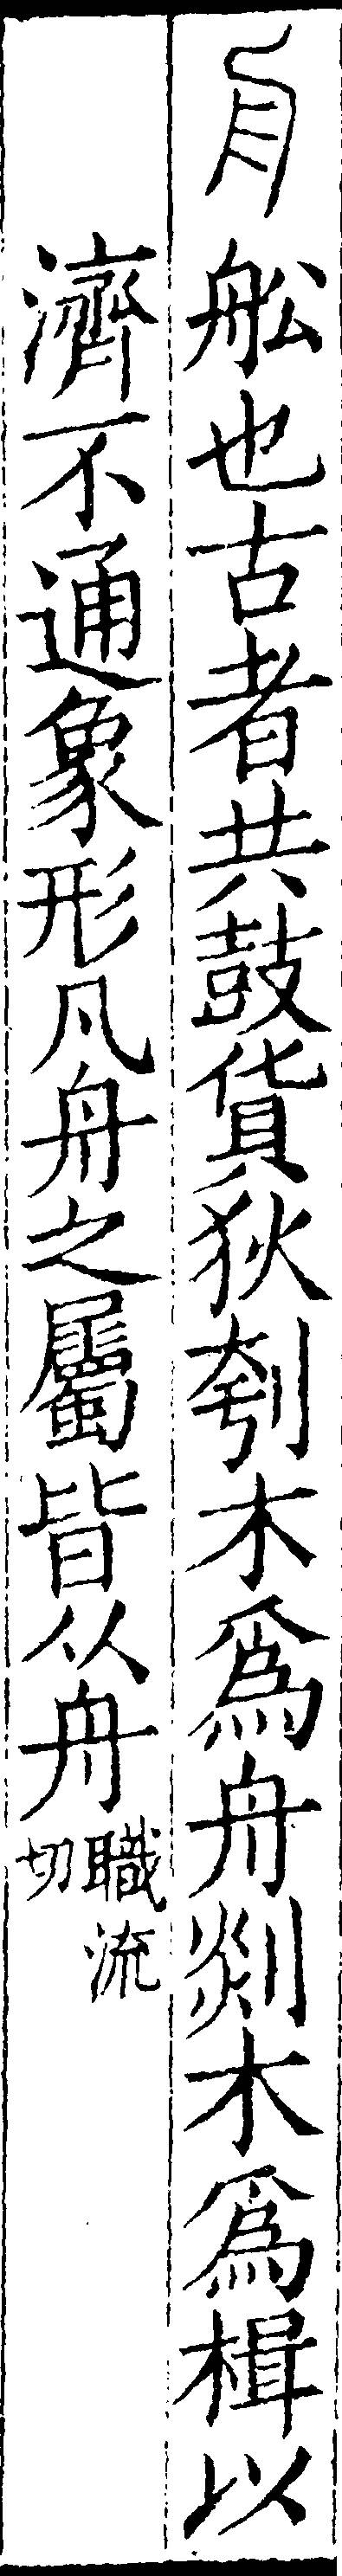 舟舩也古者共鼓貨狄刳木爲舟剡木爲楫以
濟不通象形凡舟之屬皆从舟職流切